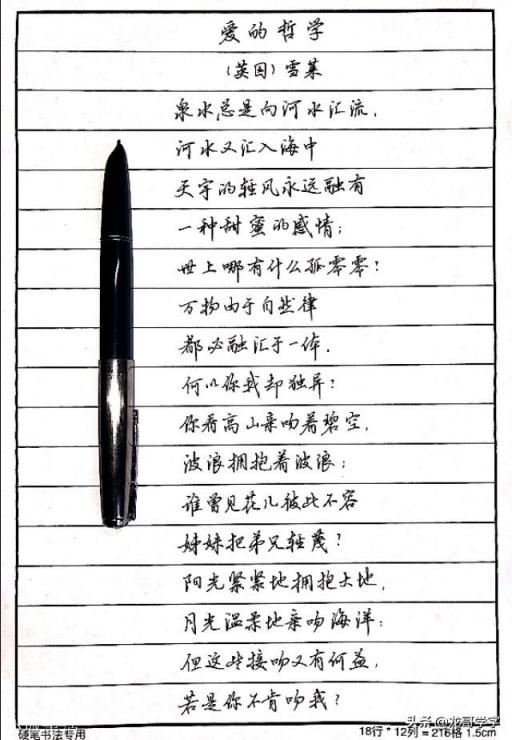 爱的哲学
（英国）雪莱
泉水总是向河水汇流，
河水又汇入海中
天宇的轻风永远融有
一种甜蜜的感情；
世上哪有什么孤零零？
万物由于自然律
都必融汇于一体．
何以你我却独异？
你看高山亲吻着碧空，
波浪拥抱着波浪；
谁曾见花儿彼此不容
姊妹把弟兄轻蔑？
阳光紧紧地拥抱大地，
月光温柔地亲吻海洋：
但这些接吻又有何益，
若是你不肯吻我？
头条 @龙哥学字
硬笔书法专用
18行 * 12列 = 216格 1.5cm